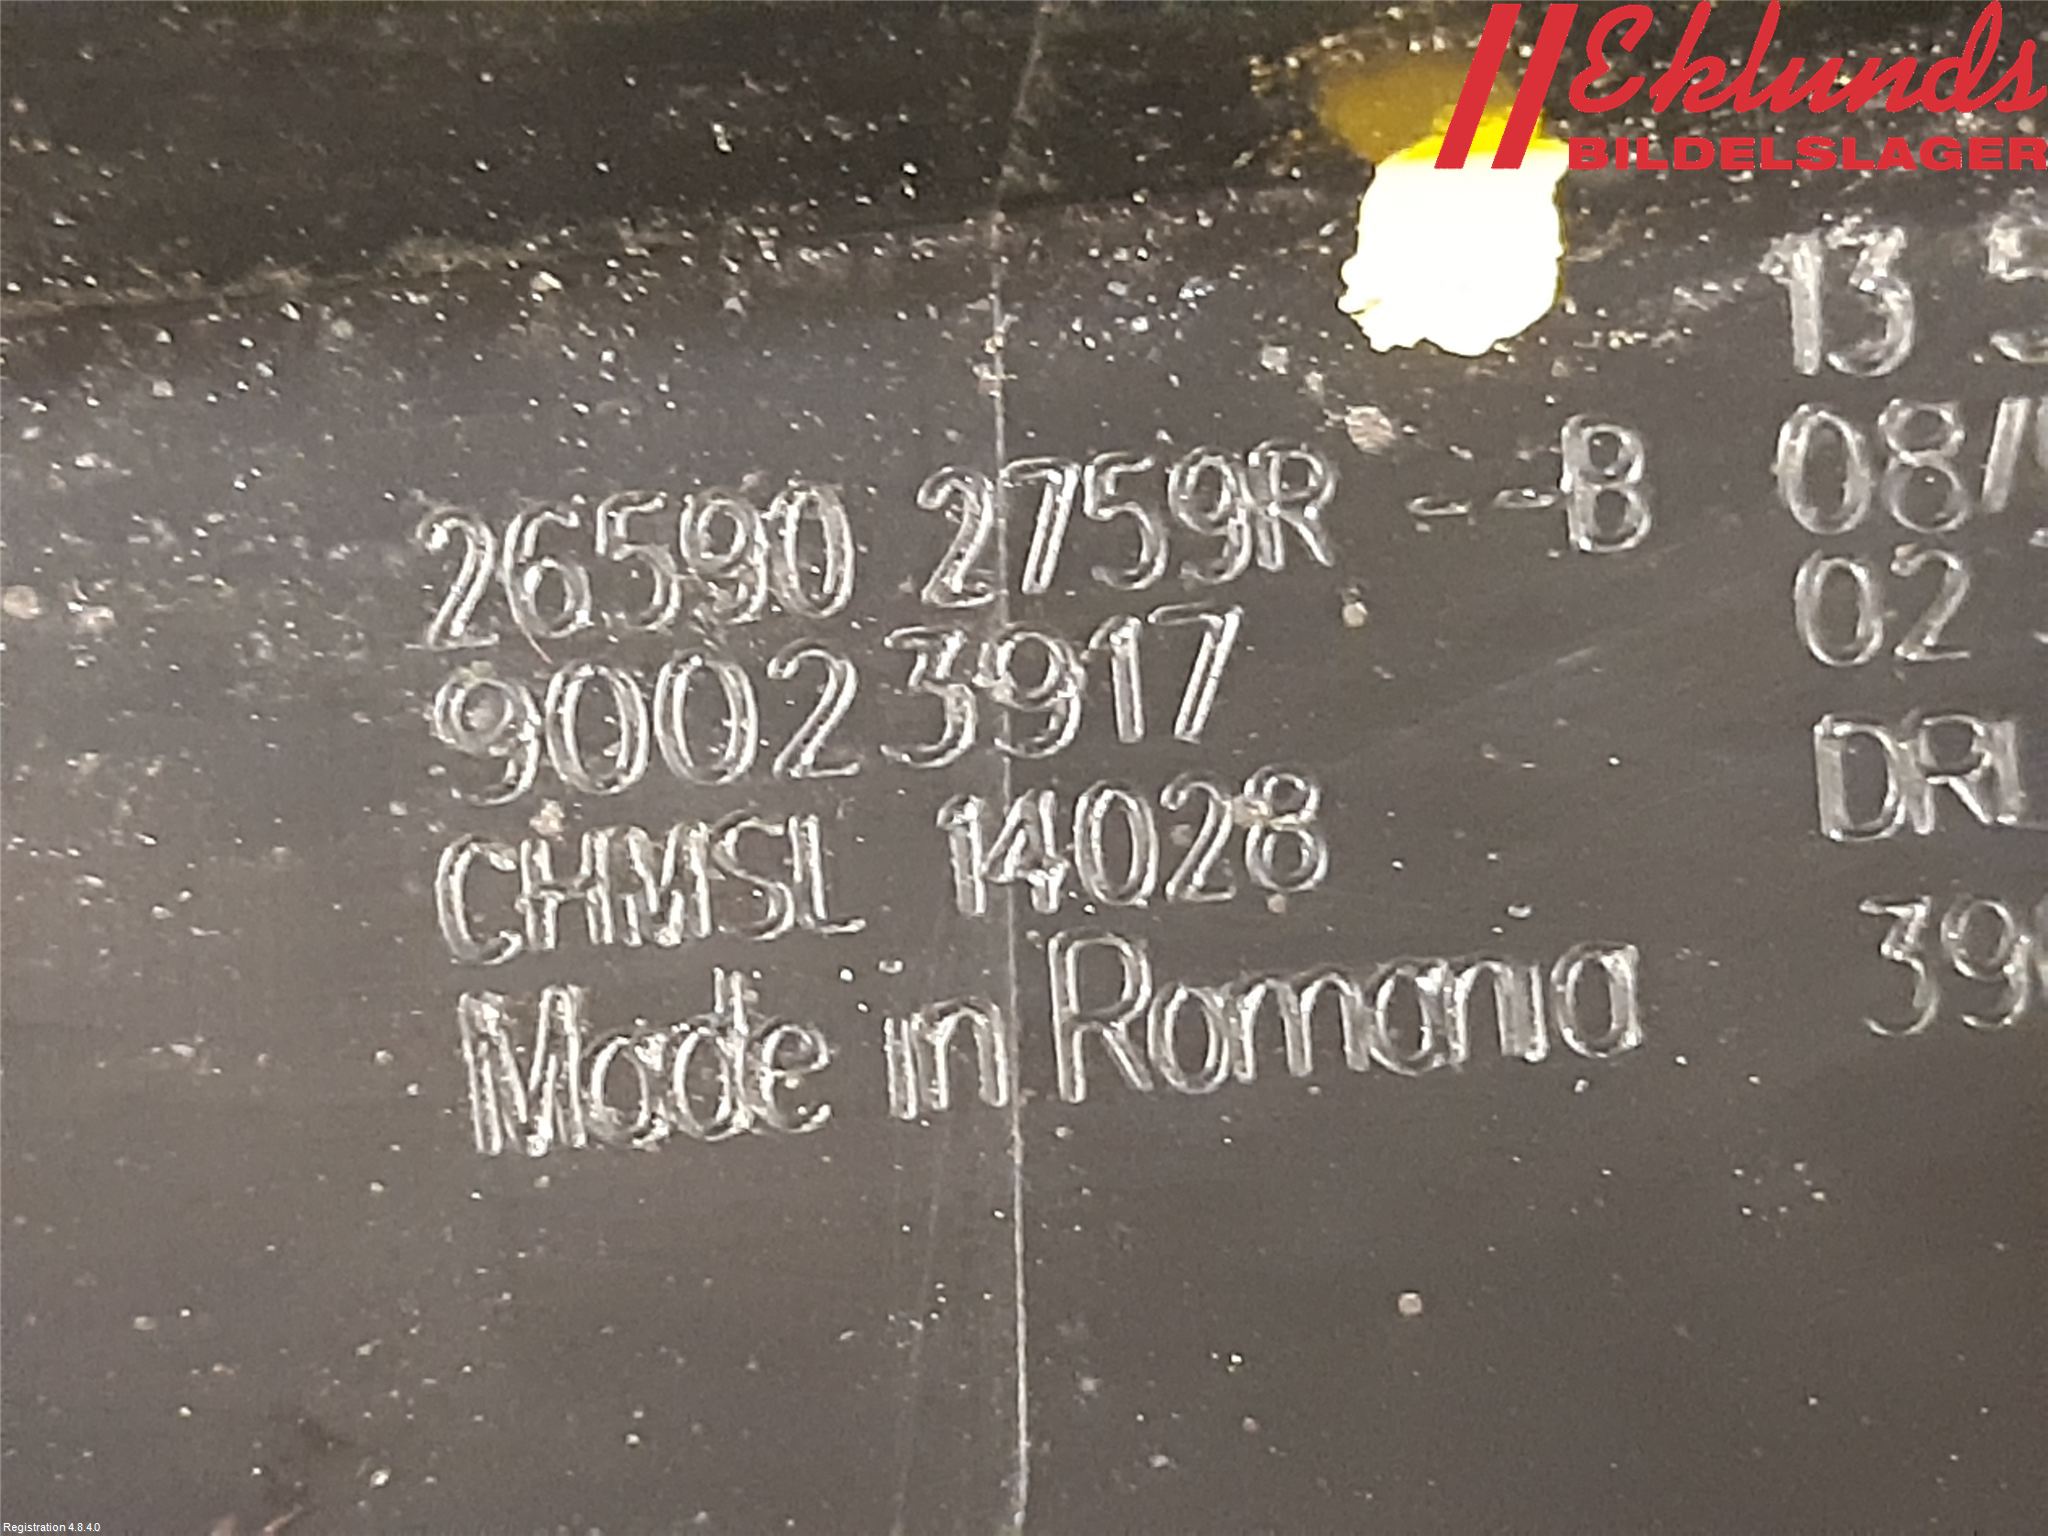 Eklunds
BILDELSLAGER
26590 2759R --B
90023917
CHMSL 14028
Made in Romania
13
08/
02
DRL
Registration 4.8.4.0